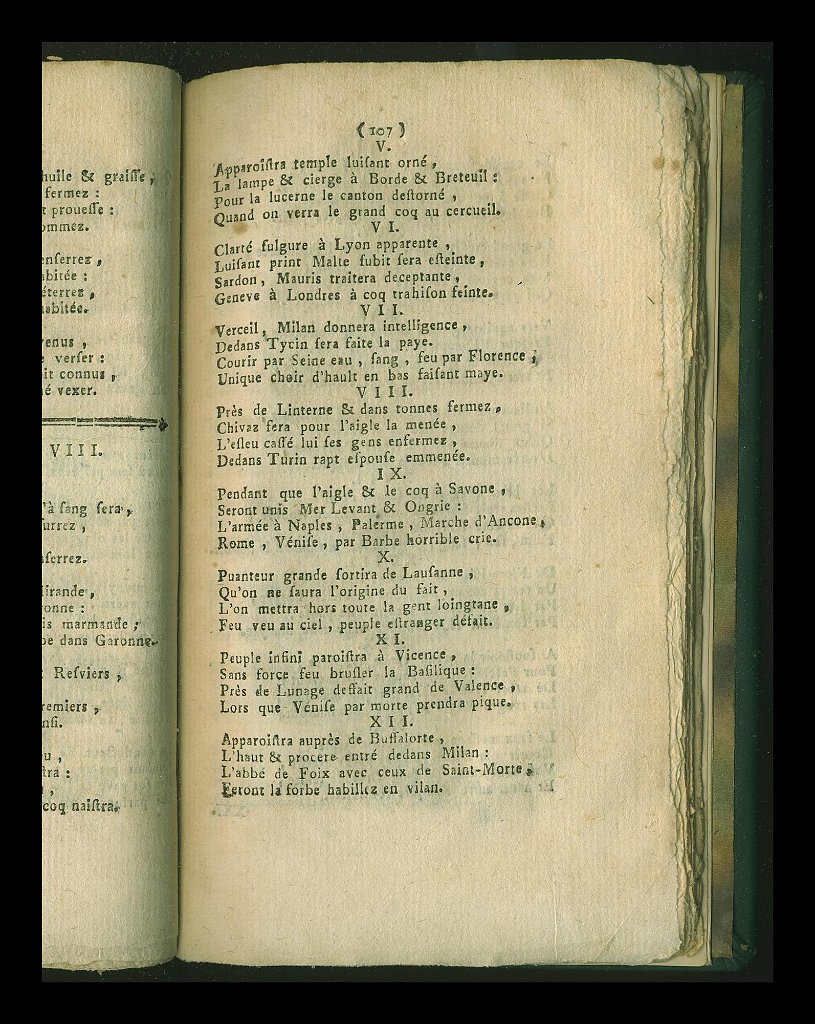 huile & graiſſe,
fermez :
t proueſſe :
ommez.
enferrez,
abitée :
éterrez,
abitée.
venus,
e verſer :
it connus,
é vexer.
VIII.
'à ſang ſera,
urrez,
ſerrez.
irande,
ronne :
is marmande ;
pe dans Garonne.
Reſviers,
remiers,
nſi.
ou,
tra :
coq naiſtra.
(107)
V.
Apparoiſtra temple luiſant orné,
La lampe & cierge à Borde & Breteuil :
Pour la lucerne le canton deſtorné,
Quand on verra le grand coq au cercueil.
VI.
Clarté fulgure à Lyon apparente,
Luiſant print Malte ſubit ſera eſteinte,
Sardon, Mauris traitera deceptante,
Geneve à Londres à coq trahiſon feinte.
VII.
Verceil, Milan donnera intelligence,
Dedans Tycin ſera faite la paye.
Courir par Seine eau, ſang, feu par Florence ;
Unique choir d'hault en bas faiſant maye.
VIII.
Près de Linterne & dans tonnes fermez,
Chivaz fera pour l'aigle la menée,
L'eſleu caſſé lui ſes gens enfermez,
Dedans Turin rapt eſpouſe emmenée.
IX.
Pendant que l'aigle & le coq à Savone,
Seront unis Mer Levant & Ongrie :
L'armée à Naples, Palerme, Marche d'Ancone,
Rome, Véniſe, par Barbe horrible crie.
X.
Puanteur grande ſortira de Lauſanne,
Qu'on ne ſaura l'origine du fait,
L'on mettra hors toute la gent loingtane,
Feu veu au ciel, peuple eſtranger défait.
XI.
Peuple infini paroiſtra à Vicence,
Sans force feu bruſler la Baſilique :
Près de Lunage deffait grand de Valence,
Lors que Véniſe par morte prendra pique.
XII.
Apparoiſtra auprès de Buffalorte,
L'haut & procere entré dedans Milan :
L'abbé de Foix avec ceux de Saint-Morte,
Feront la forbe habillez en vilan.